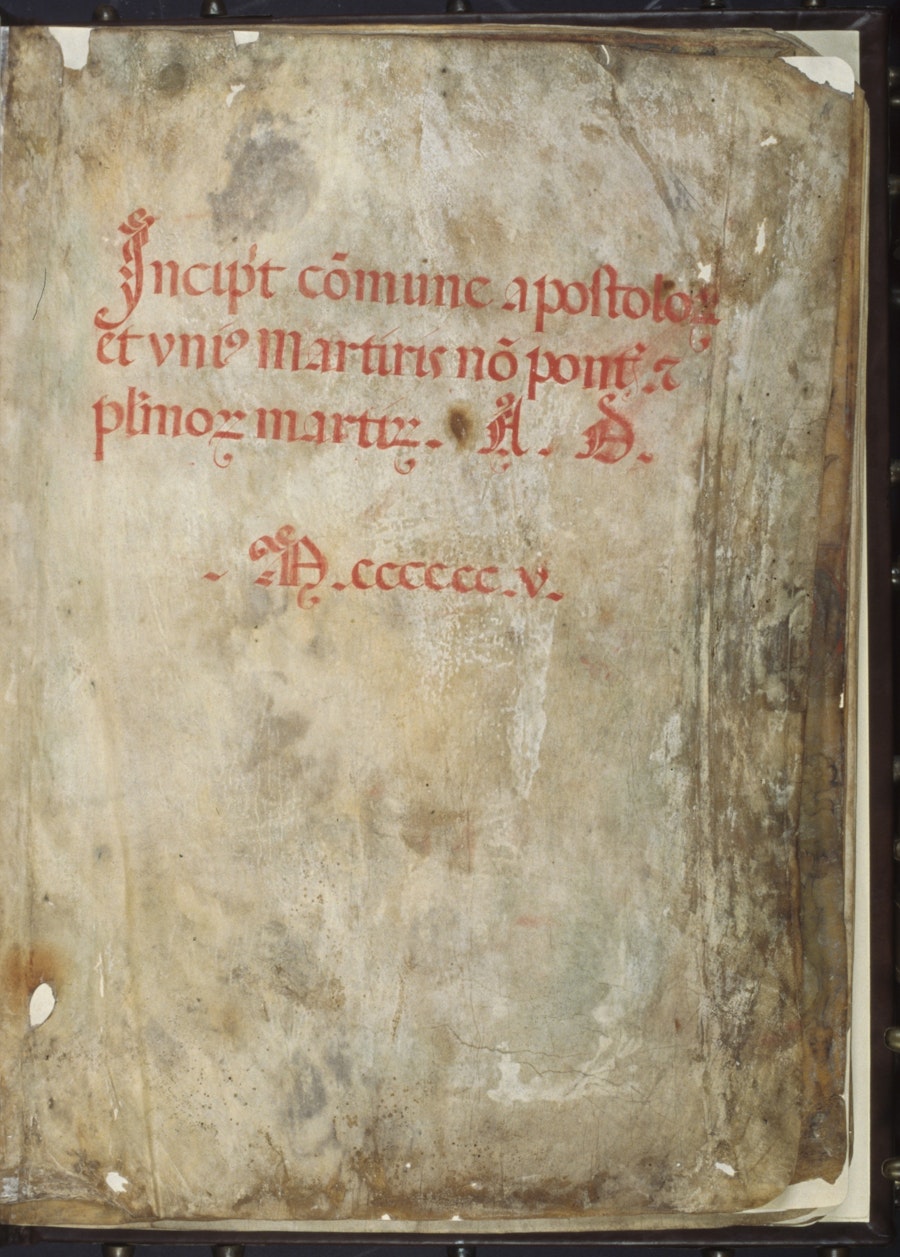 Incip̄t cōmune apostoloꝝ
et vniꝰ Martiris nō pont̄. ⁊
pl̄imoꝝ martiꝝ. A. D.
. M. cccccc. v.